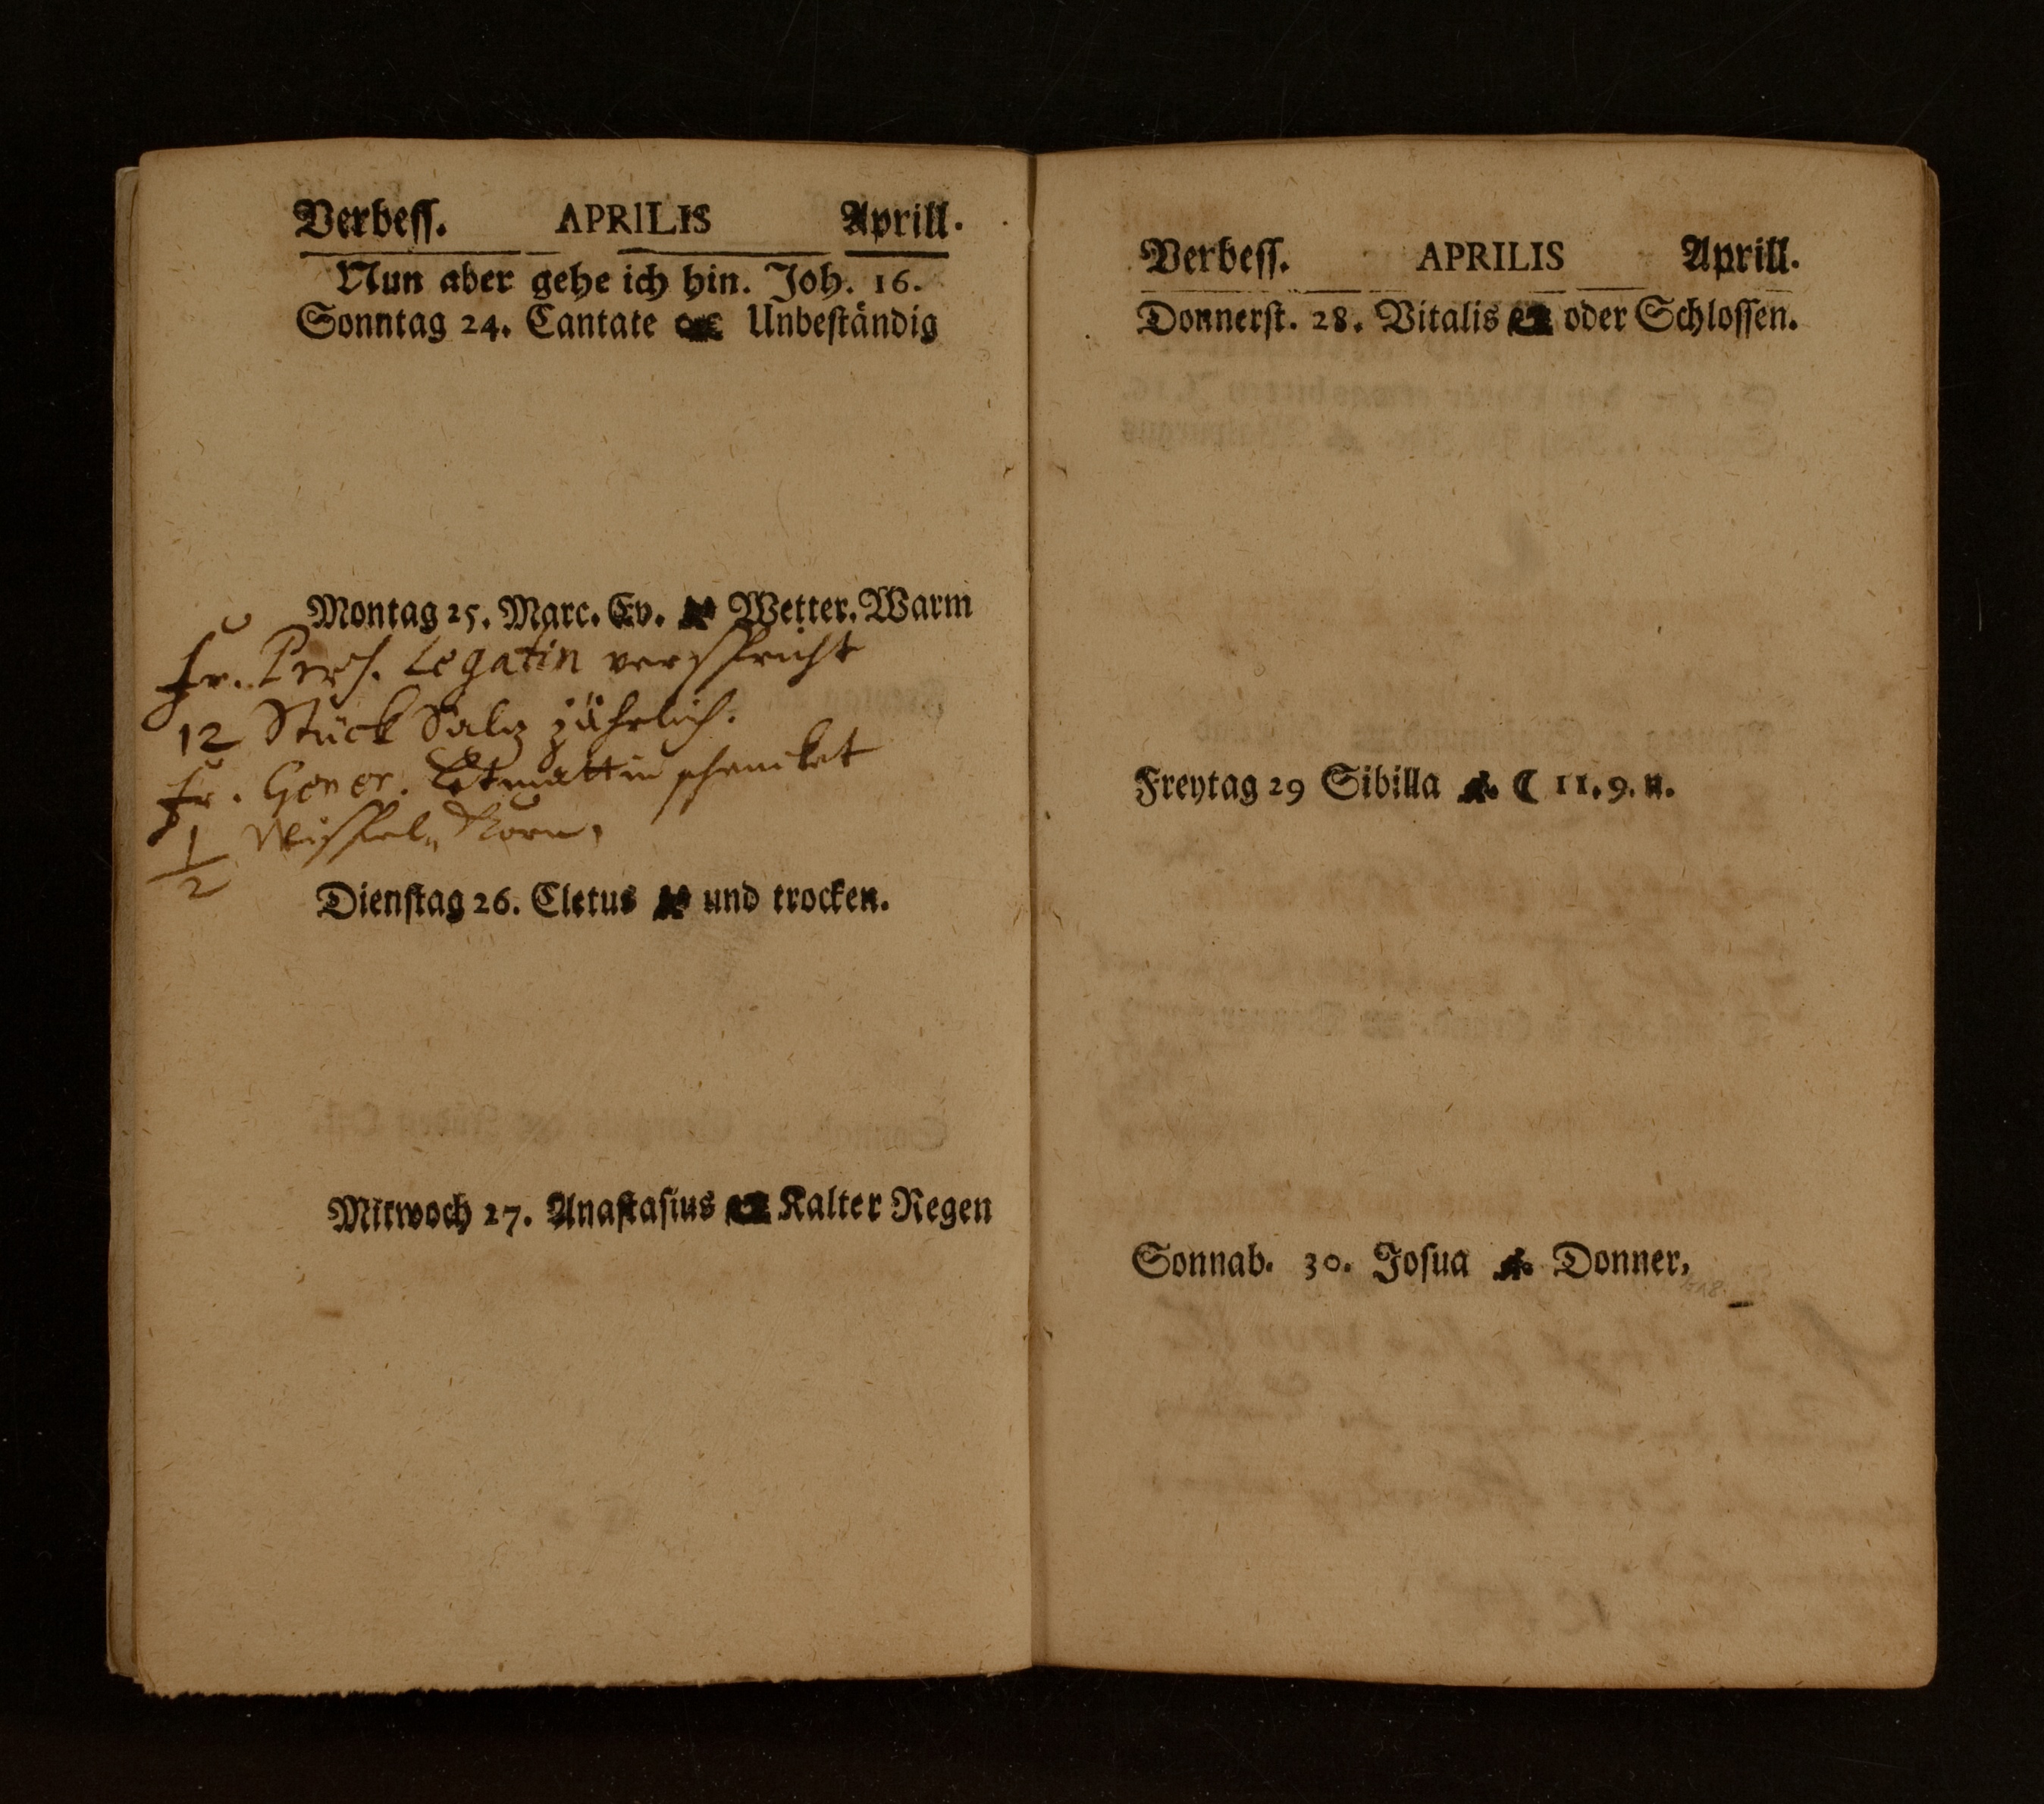 Verbess. APRILIS Aprill.
Nun aber gehe ich hin. Joh. 16.
Sonntag 24. Cantate Unbeständig
Montag 25. Marc. Ev. Wetter. Warm
Fr. Legatin verspricht
12 Stück Salz jährlich.
Fr. schencket
1/2 Wispel Korn,
Dienstag 26. Cletus und trocken.
Mitwoch 27. Anastasius Kalter Regen
Verbess. APRILIS Aprill.
Donnerst. 28. Vitalis oder Schlossen.
Freytag 29 Sibilla ☾ 11. 9. n.
Sonnab. 30. Josua Donner,